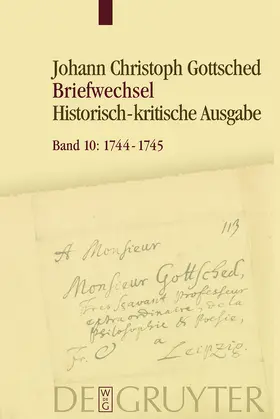 Johann Christoph Gottsched
Briefwechsel
Historisch-kritische Ausgabe
Band 10: 1744-1745
113
A Monsieur
Monsieur Gottsched,
Tres scavant Professeur
extraordinaire, de la
Philosophie & Poesie,
Fr. a
Leipzig.
W
DE G
DE GRUYTER